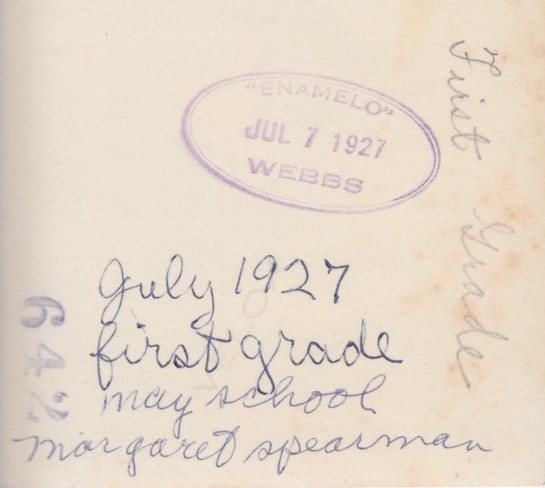 "ENAMELO"
JUL 7 1927
WEBBS
First Grade
July 1927
first grade
may school
margaret spearman
642